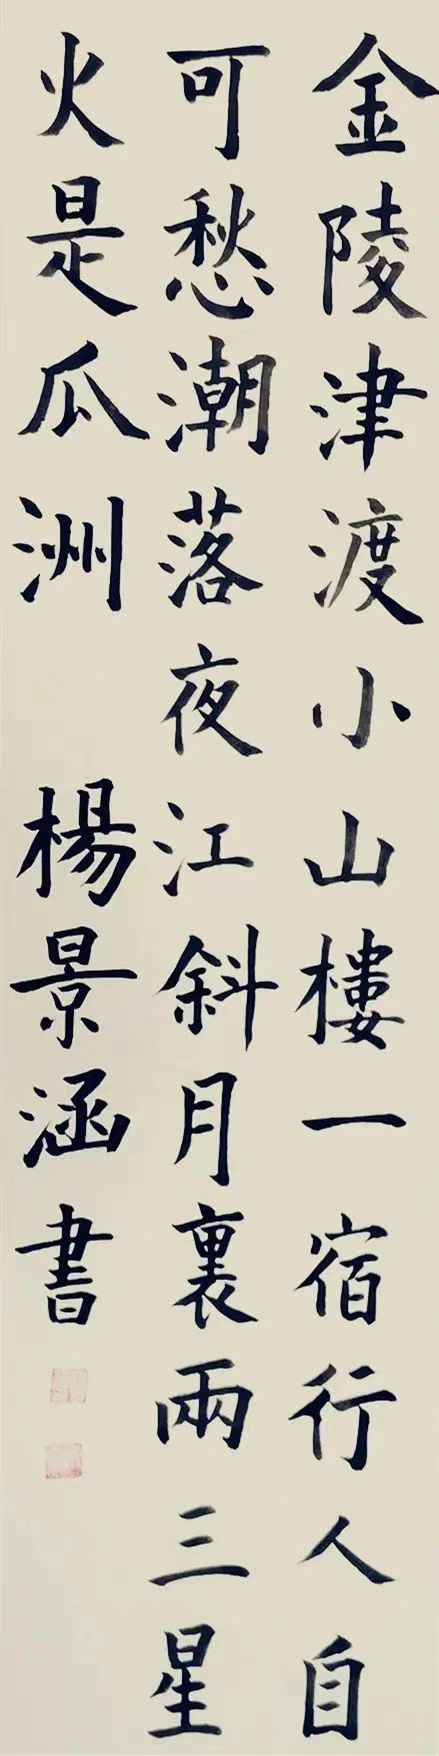 金陵津渡小山樓一宿行人自
可愁潮落夜江斜月裏兩三星
火是瓜洲 楊景涵書